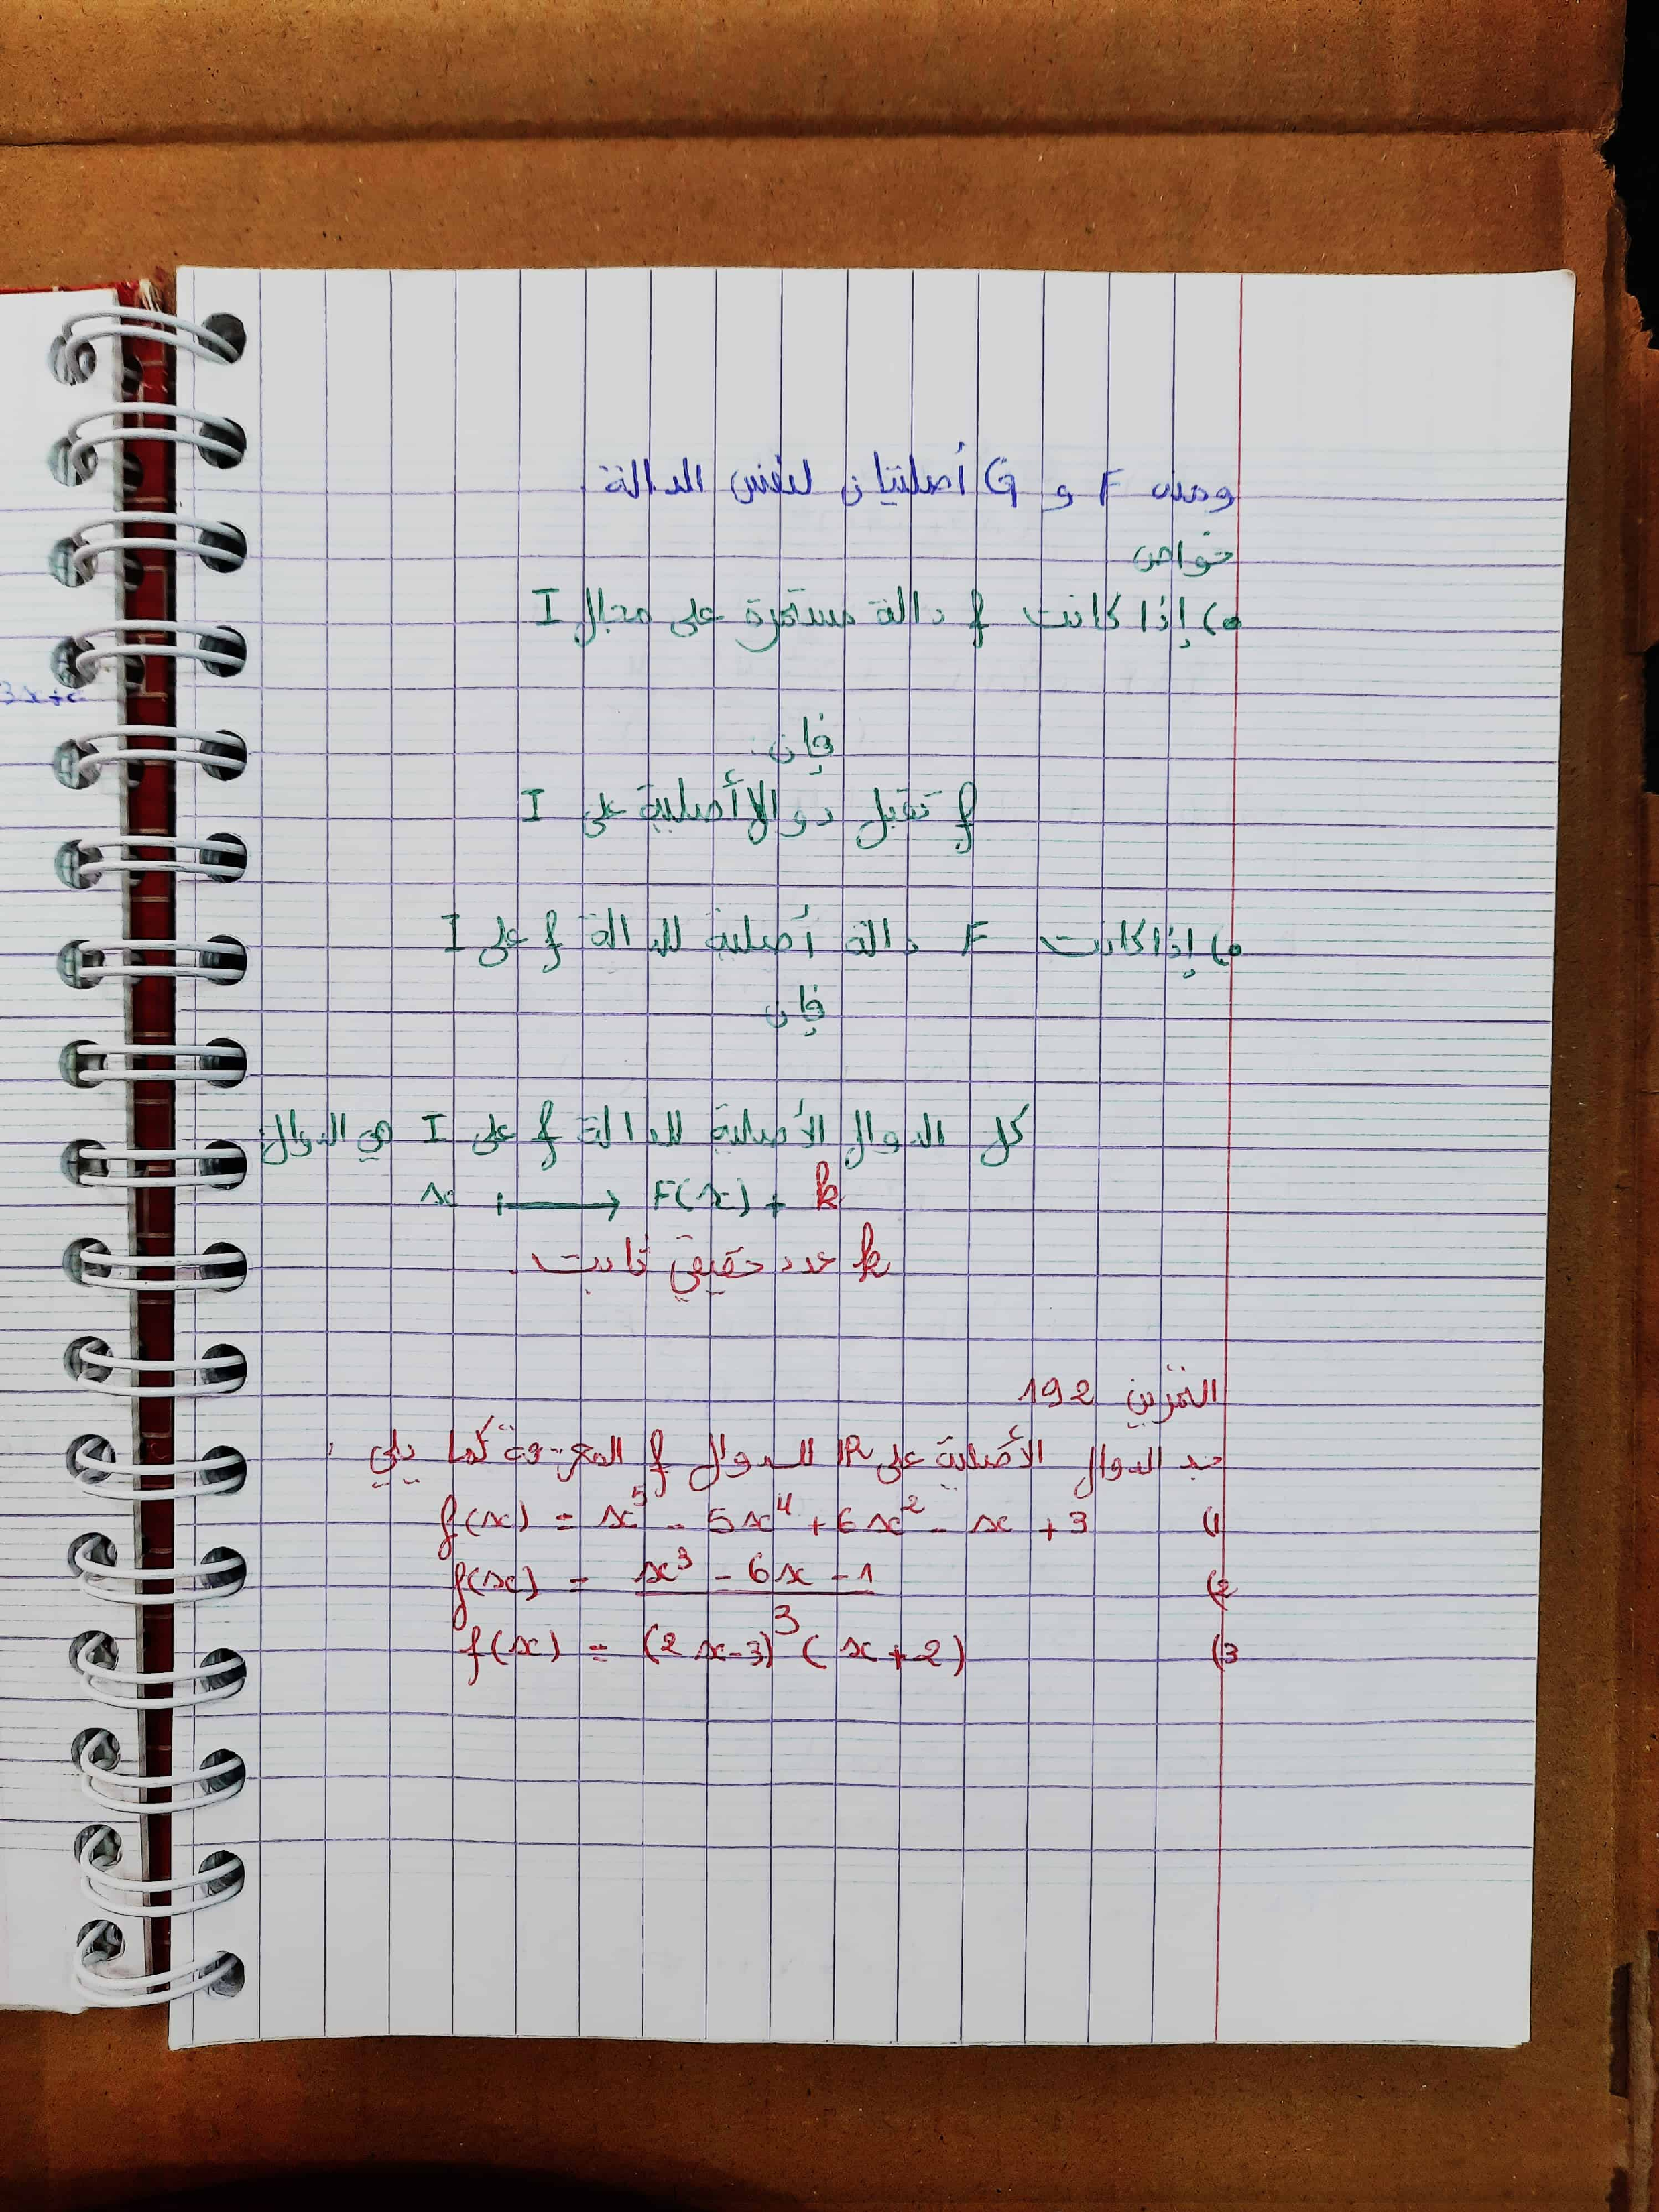 3x+c
ومنه F و G أصليتان لنفس الدالة.
خواص
•) إذا كانت f دالة مستمرة على مجال I
فإن:
f تقبل دوالا أصلية على I
•) إذا كانت F دالة أصلية للدالة f على I
فإن
كل الدوال الأصلية للدالة f على I هي الدوال:
x ⟼ F(x) + k
k عدد حقيقي ثابت.
التمرين 192
جد الدوال الأصلية على ℝ للدوال f المعرفة كما يلي:
1) f(x) = x⁵ - 5x⁴ + 6x² - x + 3
2) f(x) = (x³ - 6x - 1)/3
3) f(x) = (2x-3)³ (x+2)